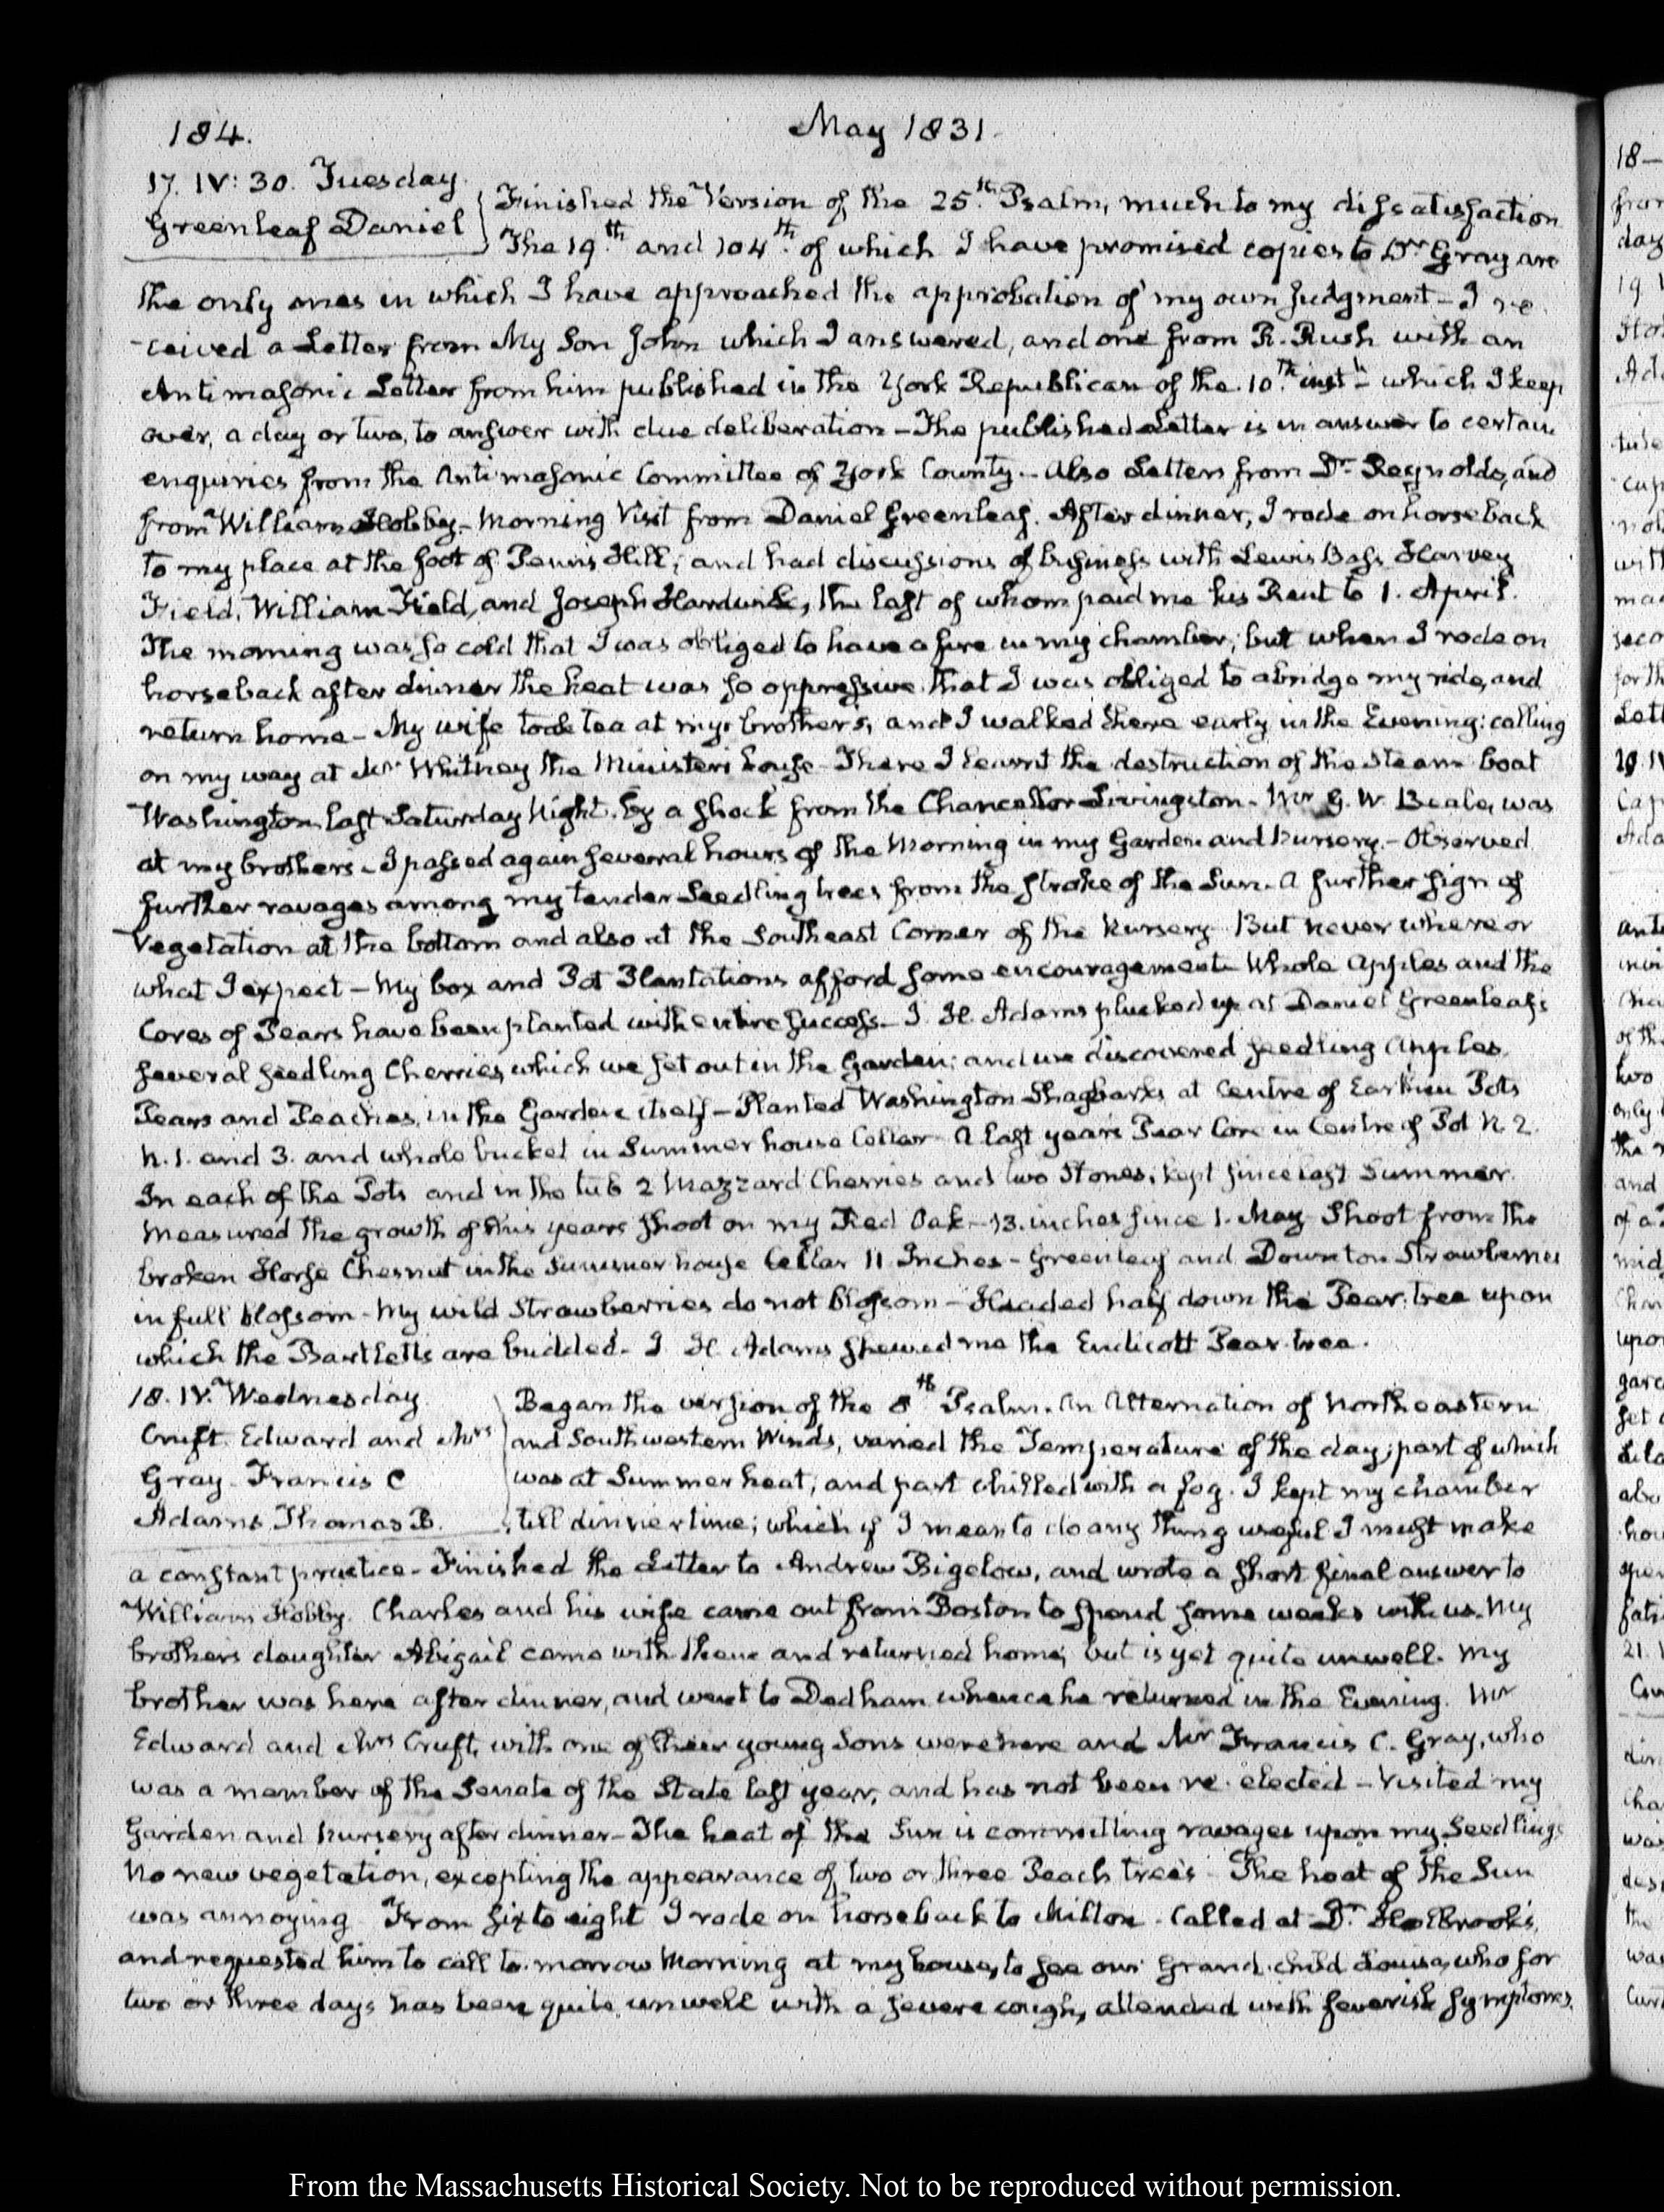 184.
May 1831.
17. IV: 30. Tuesday.
Greenleaf Daniel
Finished the Version of the 25th. Psalm, much to my dissatisfaction
The 19th. and 104th. of which I have promised copies to Dr Gray are
the only ones in which I have approached the approbation of my own judgment - I re-
-ceived a Letter from My Son John which I answered, and one from R. Rush with an
Antimasonic Letter from him published in the York Republican of the 10th. instt. which I keep
over, a day or two, to answer with due deliberation - The published Letter is in answer to certain
enquiries from the Antimasonic Committee of York County.- Also Letters from Dr Reynolds, and
from William Hobby.- Morning Visit from Daniel Greenleaf. After dinner, I rode on horseback
to my place at the foot of Penns Hill; and had discussions of business with Lewis Bass, Harvey
Field, William Field, and Joseph Hardwick, the last of whom paid me his Rent to 1. April.
The morning was so cold that I was obliged to have a fire in my chamber; but when I rode on
horseback after dinner the heat was so oppressive that I was obliged to abridge my ride, and
return home - My wife took tea at my brother's, and I walked there early in the Evening: calling
on my way at Mr Whitney the Minister's house - There I learnt the destruction of the Steam boat
Washington last Saturday Night. by a shock from the Chancellor Livingston - Mr G. W. Beale, was
at my brothers - I passed again several hours of the Morning in my Garden and Nursery.- Observed
further ravages among my tender Seedling trees from the stroke of the Sun. A further sign of
Vegetation at the bottom and also at the Southeast Corner of the Nursery But never where or
what I expect - My box and Pot Plantations afford some encouragement Whole Apples and the
Cores of Pears have been planted with entire success - I. H. Adams plucked up at Daniel Greenleaf's
several seedling Cherries, which we set out in the Garden; and we discovered seedling Apples
Pears and Peaches, in the Garden itself - Planted Washington Shagbarks at Centre of Earthen Pots
N. 1. and 3. and whole bucket in Summer house Cellar A last years Pear Core in Centre of Pot N. 2.
In each of the Pots and in the tub 2 Mazzard Cherries and two Stones, kept since last Summer.
Measured the growth of this years shoot on my Red Oak - 13. inches since 1. May Shoot from the
broken Horse Chesnut in the Summer house Cellar 11 Inches - Greenleaf and Downton Strawberries
in full blossom - My wild Strawberries do not blossom - Headed half down the Pear-tree upon
which the Bartletts are budded - I H. Adams shewed me the Endicott Pear tree.
18. IV. Wednesday
Cruft. Edward and Mrs
Gray. Francis C
Adams Thomas B.
Began the version of the 8th Psalm. An Alternation of Northeastern
and Southwestern Winds, varied the Temperature of the day; part of which
was at Summer heat, and part chilled with a fog. I kept my chamber
till dinner time; which if I mean to do any thing useful I must make
a constant practice - Finished the Letter to Andrew Bigelow, and wrote a short final answer to
William Hobby. Charles and his wife came out from Boston to spend some weeks with us. My
brother's daughter Abigail came with them and returned home, but is yet quite unwell. My
brother was here after dinner, and went to Dedham whence he returned in the Evening. Mr
Edward and Mrs Cruft, with one of their young Sons were here and Mr Francis C. Gray, who
was a member of the Senate of the State last year, and has not been re-elected - Visited my
Garden and Nursery after dinner - The heat of the Sun is committing ravages upon my Seedlings
No new vegetation, excepting the appearance of two or three Peach trees - The heat of the Sun
was annoying From six to eight I rode on horseback to Milton. Called at Dr Holbrook's,
and requested him to call to-morrow Morning at my house, to see our Grand-child Louisa, who for
two or three days has been quite unwell with a severe cough, attended with feverish symptoms.
From the Massachusetts Historical Society. Not to be reproduced without permission.